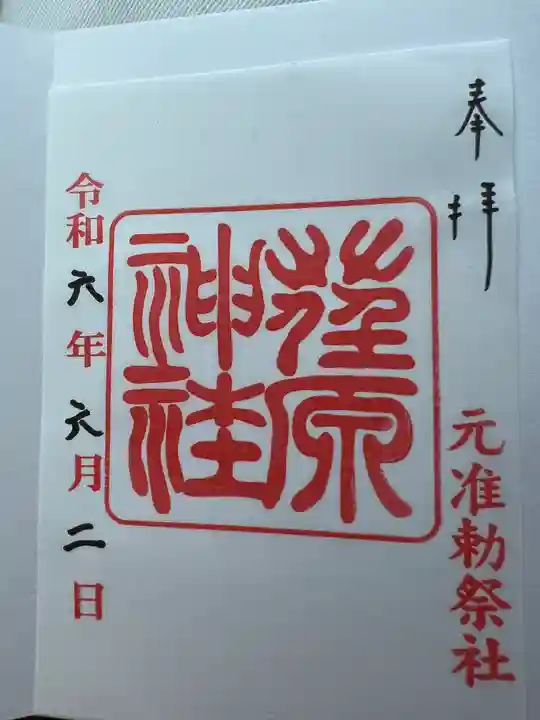 奉拝
元准勅祭社
荏原
神社
令和六年六月二日